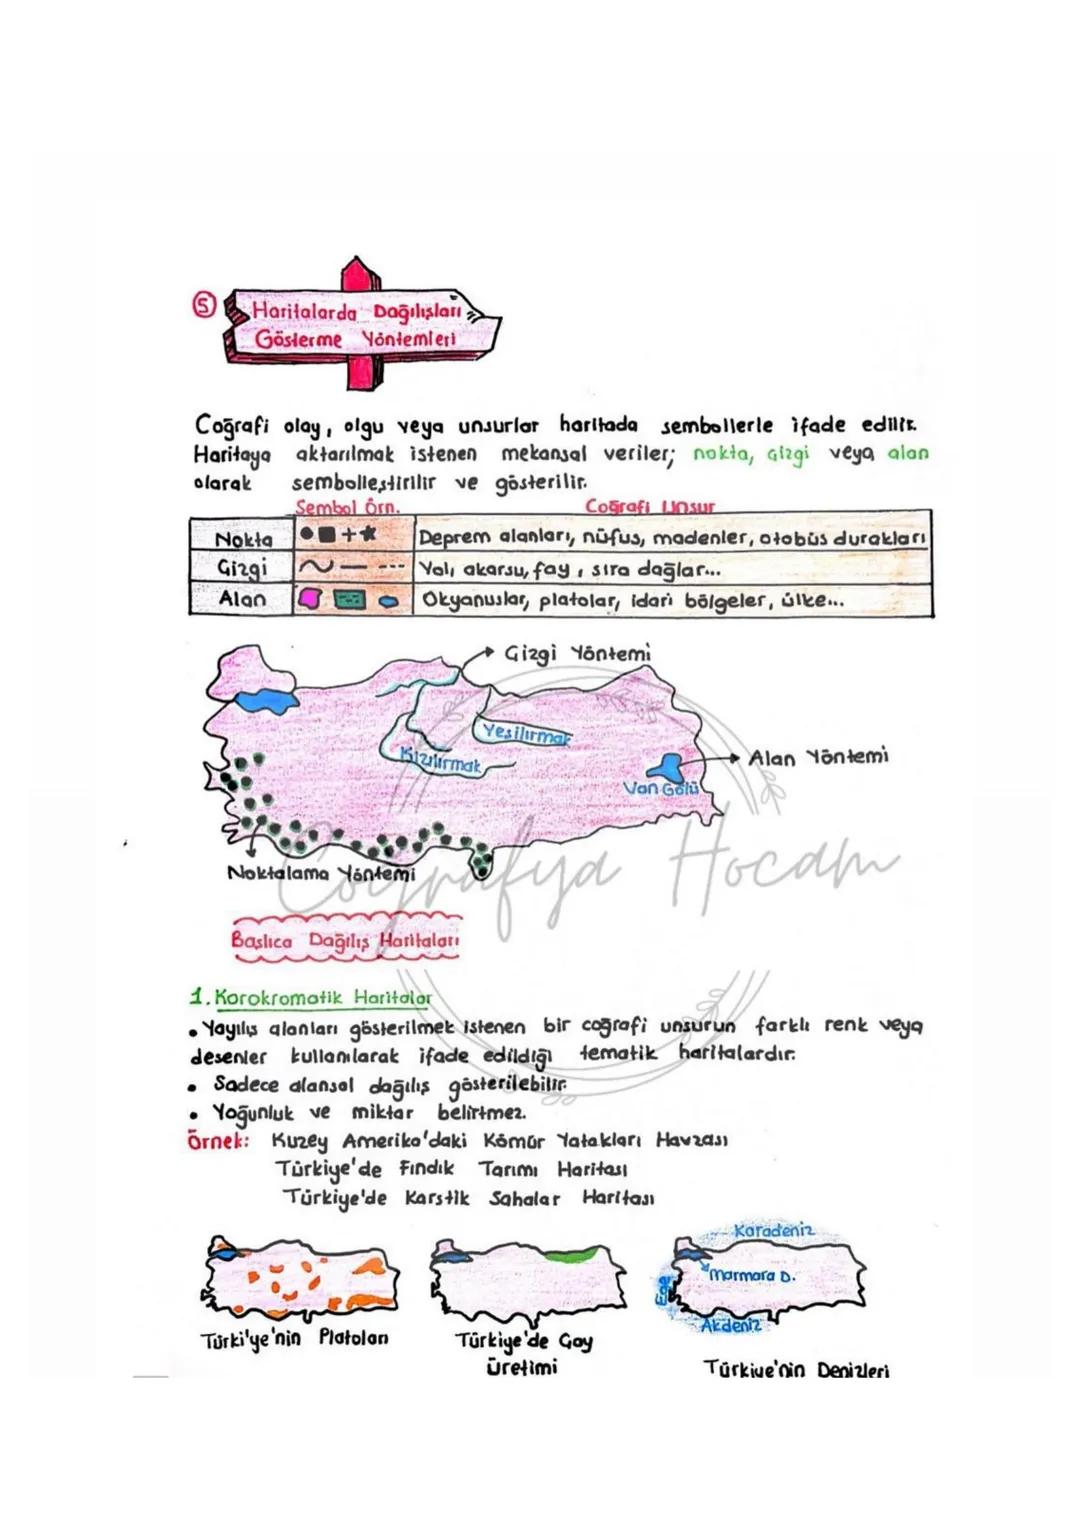 5
Haritalarda Dağılışları
Gösterme Yöntemleri
Coğrafi olay, olgu veya unsurlar haritada sembollerle ifade edilir.
Haritaya aktarılmak istenen mekansal veriler; nokta, çizgi veya alan
olarak sembolleştirilir ve gösterilir.
Sembol Örn. Coğrafi Unsur
Nokta Deprem alanları, nüfus, madenler, otobüs durakları
Çizgi Yol, akarsu, fay, sıra dağlar...
Alan Okyanuslar, platolar, idari bölgeler, ülke...
Çizgi Yöntemi
Yeşilırmak
Kızılırmak
Alan Yöntemi
Van Gölü
Noktalama Yöntemi
Coğrafya Hocam
Başlıca Dağılış Haritaları
1. Korokromatik Haritalar
• Yayılış alanları gösterilmek istenen bir coğrafi unsurun farklı renk veya
desenler kullanılarak ifade edildiği tematik haritalardır.
• Sadece alansal dağılış gösterilebilir.
• Yoğunluk ve miktar belirtmez.
Örnek: Kuzey Amerika'daki Kömür Yatakları Havzası
Türkiye'de Fındık Tarımı Haritası
Türkiye'de Karstik Sahalar Haritası
Karadeniz
Marmara D.
Ege
Akdeniz
Türki'ye'nin Platoları
Türkiye'de Çay
Üretimi
Türkiye'nin Denizleri